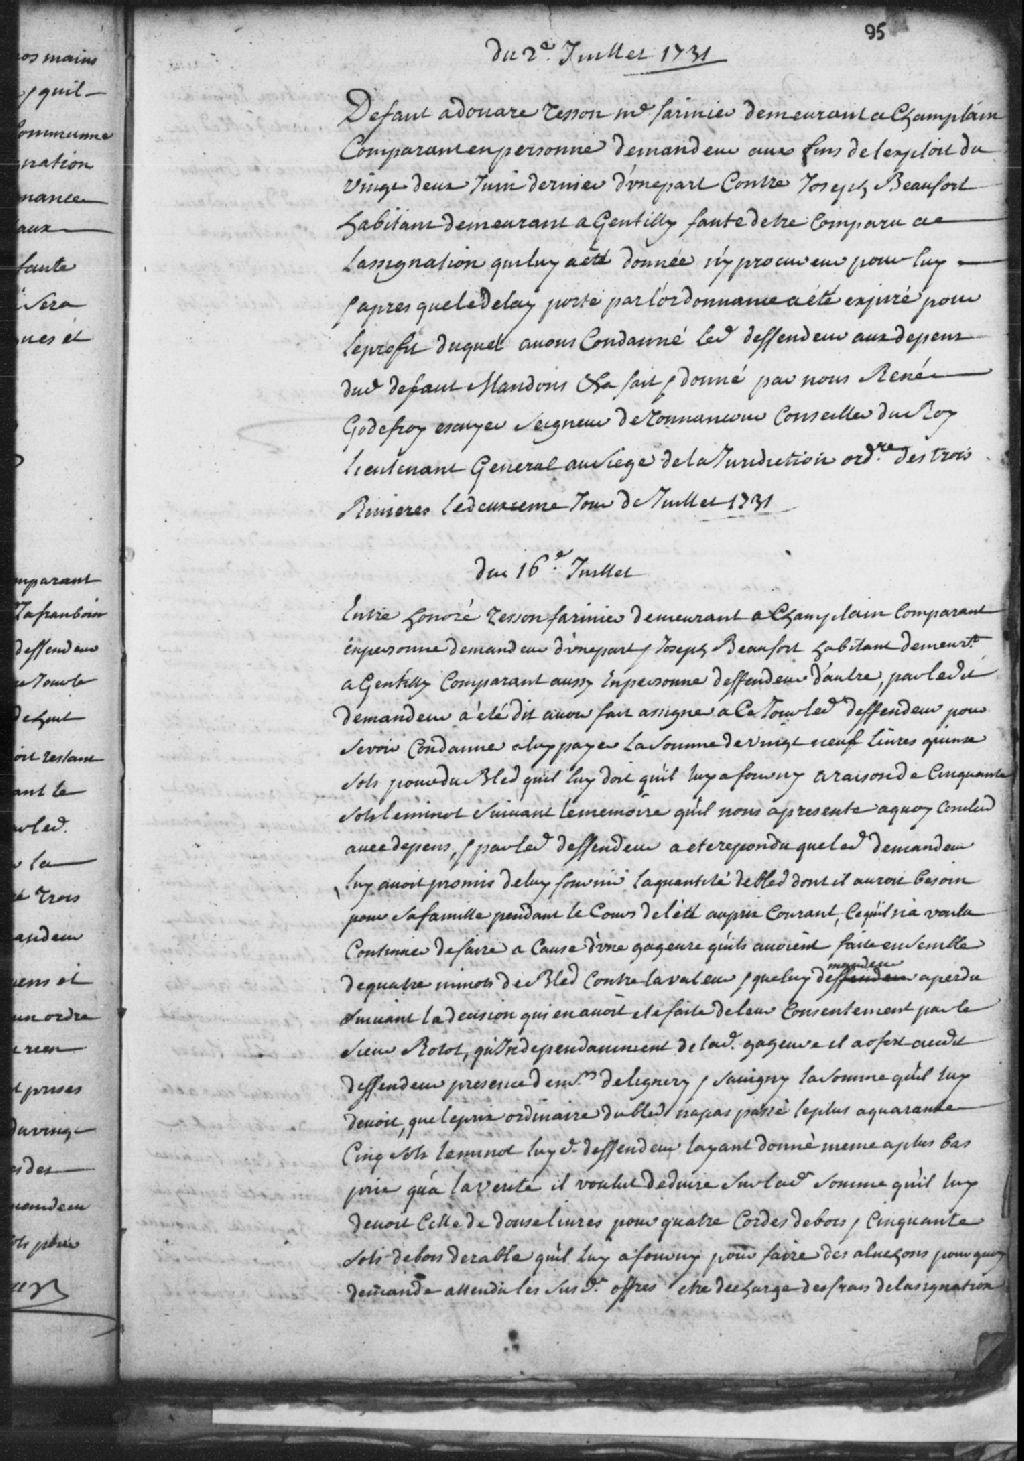 os mains
/ quil
Commune
nation
nance
aux
faute
Sera
ues et
mparant
Lafranboise
deffendeur
oit restant
ant le
la
Trois
andeur
ens et
un ordre
rien
t prises
du vingt
mandeur
95
du 2e. Juillet 1731
Defaut a douare Tesson md farinier demeurant a Champlain
Comparant en personne demandeur aux fins de lexploit du
vingt deux Juin dernier d'une part Contre Joseph Beaufort
habitant demeurant a Gentilly faute detre Comparu a
Lassignation qui luy a eté donnée n'y procureur pour luy
/ apres que le Delay porté par l'ordonnance a été expiré pour
le profit duquel avons Condanné led deffendeur aux depens
dud defaut Mandons &a fait / donné par nous René
Godefroy escuyer Seigneur de Tonnancour Conseiller du Roy
Lieutenant General au Siege de la Juridiction ordre des trois
Rivieres le deuxieme Jour de Juillet 1731
du 16e. Juillet
Entre honoré Tesson farinier demeurant a Champlain Comparant
en personne demandeur d'une part / Joseph Beaufort habitant demeurt
a Gentilly Comparant aussy en personne deffendeur d'autre, par ledit
demandeur a été dit avoir fait assigné a Ce Jour led deffendeur pour
se voir Condanné a luy payer la Somme de vingt neuf livres quinze
Sols pour du Bled qu'il luy doit qu'il luy a fourny a raison de Cinquante
sols le minot Suivant le memoire qu'il nous a presenté a quoy Conclud
avec depens, / par led deffendeur a eté repondu que led demandeur
luy avoit promis de luy fournir la quantité de bled dont il auroit besoin
pour Sa famille pendant le Cours de l'été au prix Courant, Ce qu'il n'a voulu
Continuer de faire a Cause d'une gageure qu'ils avoient faite ensemble
de quatre minots de Bled Contre la valeur / que luy deffendeur mandeur a perdu
Suivant la decision qui en avoit eté faite de leur Consentement par le
Sieur Rotot, qu'independamment de lad. gageure il a offert audit
deffendeur presence de mrs de lignery / Savigny la Somme qu'il luy
devoit, que le prix ordinaire du bled na pas passé le plus a quarante
Cinq Sols le minot luyd deffendeur layant donné meme a plus bas
prix qu'a la verité il voulut deduire Sur lad Somme qu'il luy
devoit Celle de douse livres pour quatre Cordes de bois / Cinquante
sols de bois derable qu'il luy a fourny pour faire des aluchons pourquoy
demande attendu les Susd. offres etre decharge des frais de lassignation